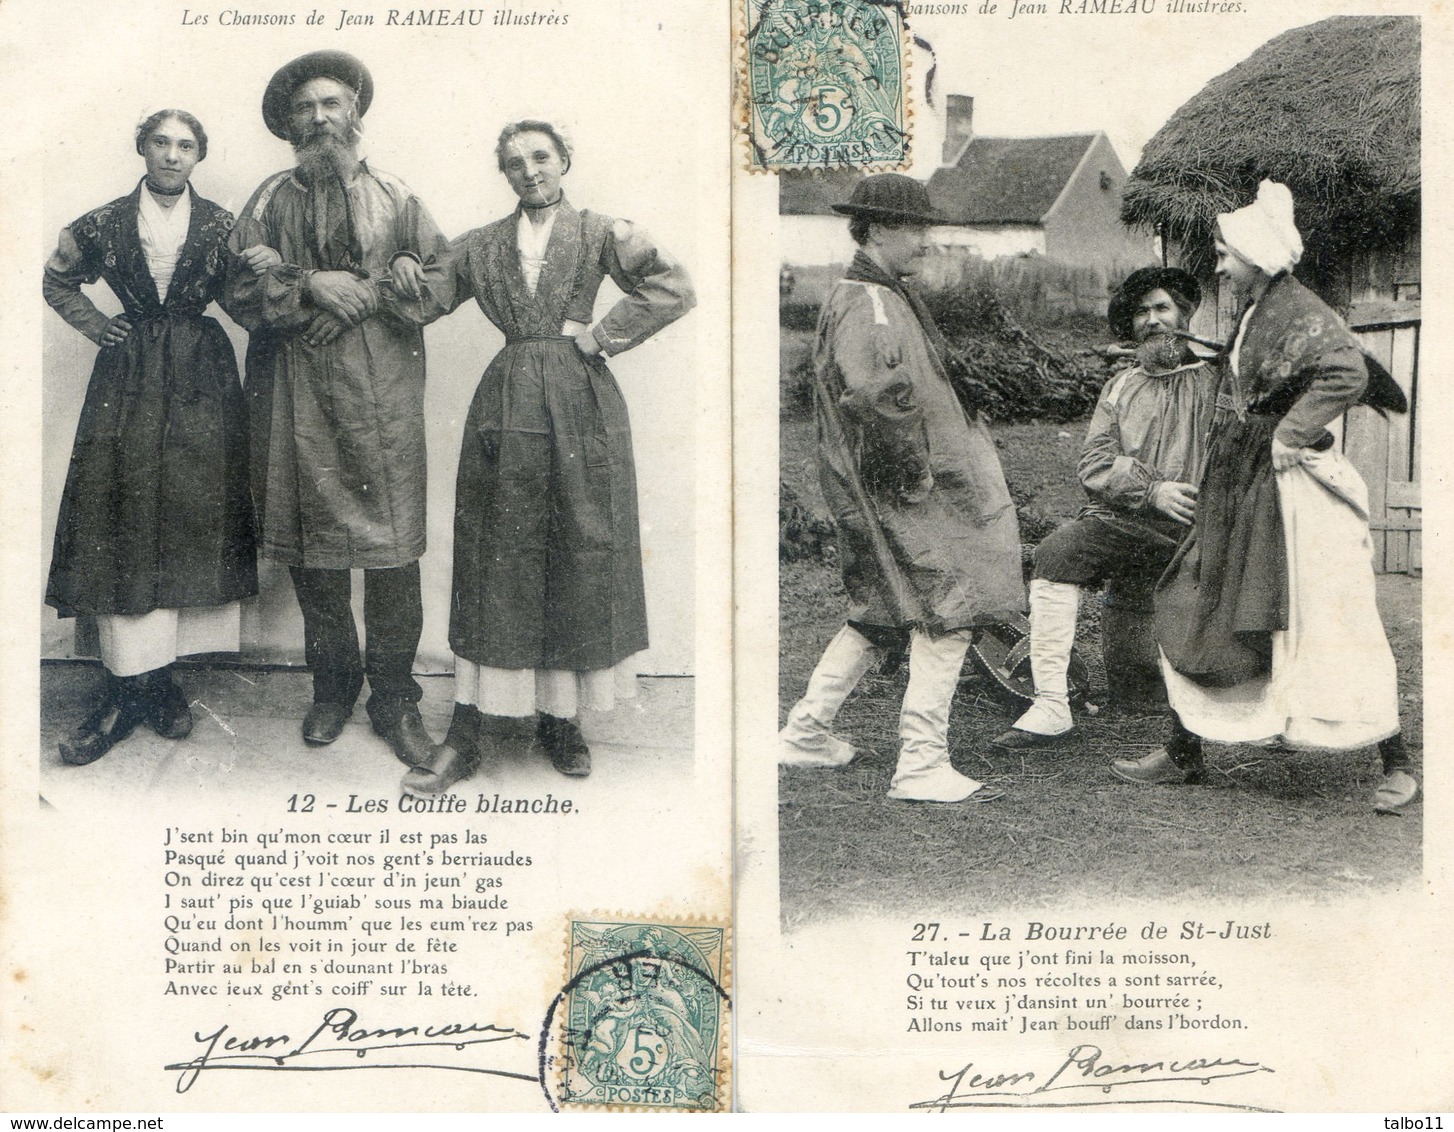 Les Chansons de Jean RAMEAU illustrées
12 - Les Coiffe blanche.
J'sent bin qu'mon cœur il est pas las
Pasqué quand j'voit nos gent's berriaudes
On direz qu'cest l'cœur d'in jeun' gas
I saut' pis que l'guiab' sous ma biaude
Qu'eu dont l'houmm' que les eum'rez pas
Quand on les voit in jour de fête
Partir au bal en s'dounant l'bras
Anvec ieux gent's coiff' sur la tête.
Jean Rameau
5c
POSTES
hansons de Jean RAMEAU illustrées.
BOURGES
5c
POSTES
27. - La Bourrée de St-Just
T'taleu que j'ont fini la moisson,
Qu'tout's nos récoltes a sont sarrée,
Si tu veux j'dansint un' bourrée ;
Allons mait' Jean bouff' dans l'bordon.
Jean Rameau
www.delcampe.net
talbo11